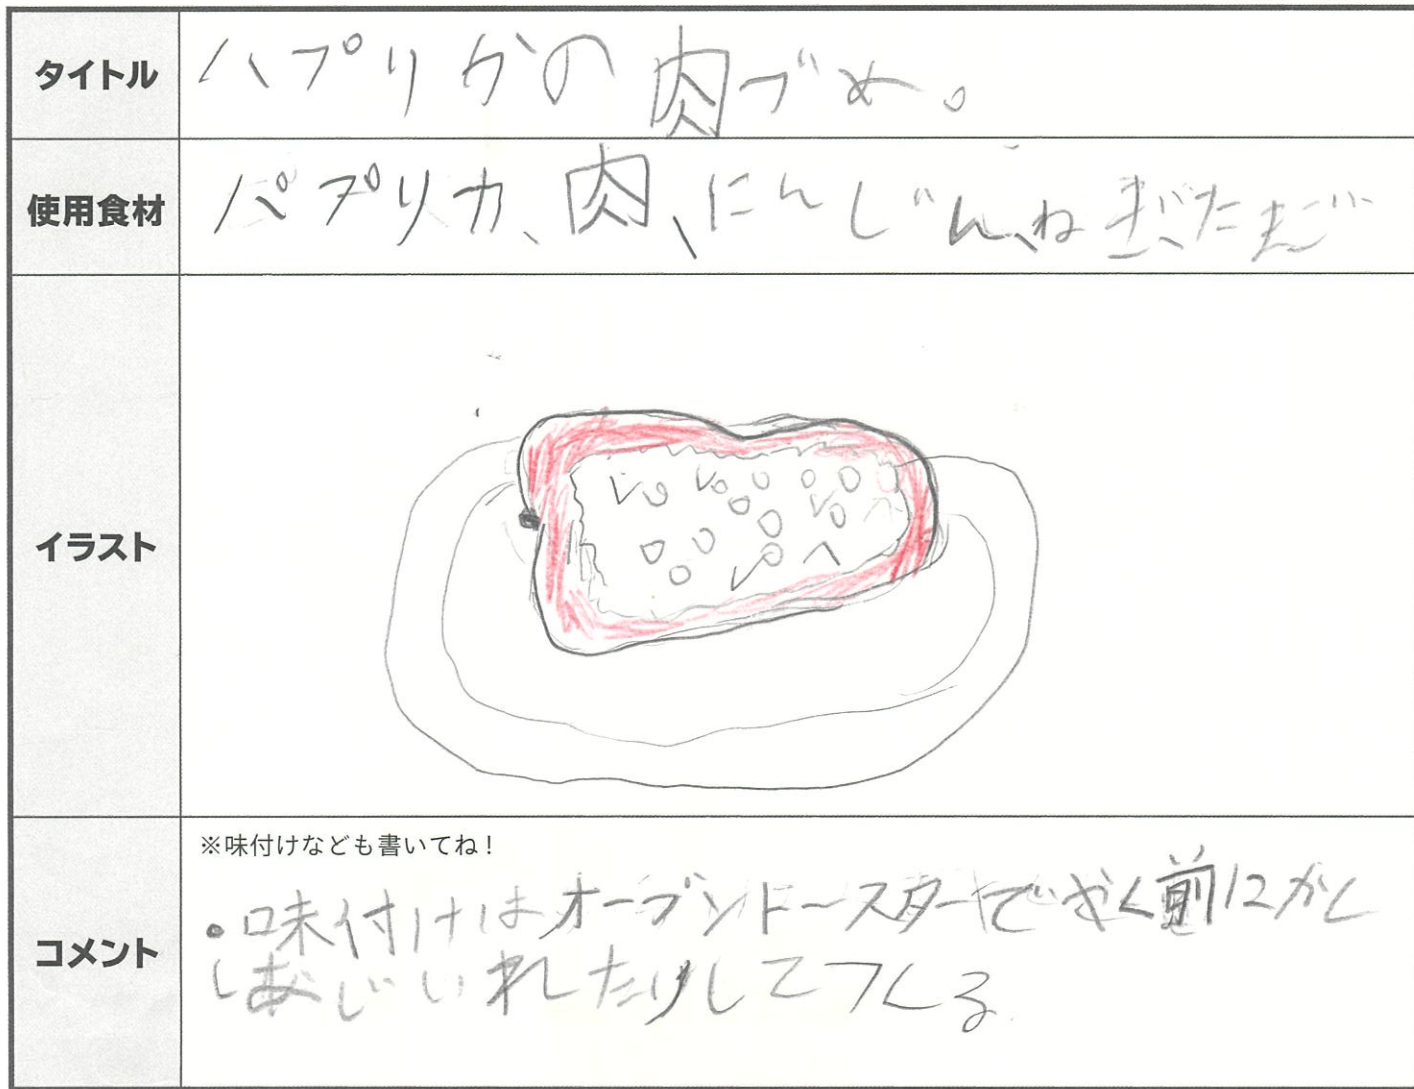 タイトル
ハプリカの肉づめ。
使用食材
パプリカ、肉、にんじん、ねぎ、たまご
イラスト
コメント
※味付けなども書いてね！
・味付けはオーブントースターでやく前に
いれたりしてつくる